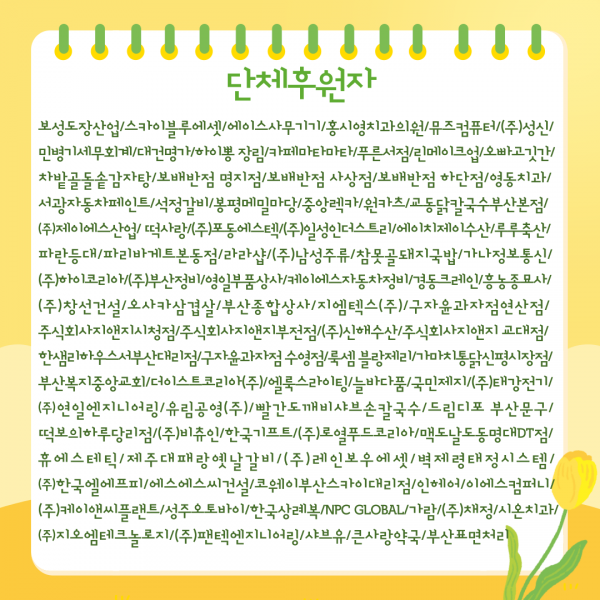 단체후원자
보성도장산업/스카이블루에셋/에이스사무기기/홍시영치과의원/뮤즈컴퓨터/(주)성신/
민병기세무회계/대건명가/하이뽕 장림/카페마타마타/푸른서점/린메이크업/오빠고깃간/
차밭골돌솥감자탕/보배반점 명지점/보배반점 사상점/보배반점 하단점/영동치과/
서광자동차페인트/석정갈비/봉평메밀마당/중앙렉카/원카츠/교동닭칼국수부산본점/
(주)제이에스산업/ 떡사랑/(주)포동에스텍/(주)일성인더스트리/에이치제이수산/루루축산/
파란등대/파리바게트본동점/라라샵/(주)남성주류/참못골돼지국밥/가나정보통신/
(주)하이코리아/(주)부산정비/영일부품상사/케이에스자동차정비/경동크레인/흥농종묘사/
(주)창선건설/오사카삼겹살/부산종합상사/지엠텍스(주)/구자윤과자점연산점/
주식회사지앤지시청점/주식회사지앤지부전점/(주)신해수산/주식회사지앤지 교대점/
한샘리하우스서부산대리점/구자윤과자점 수영점/룩셈 블랑제리/가마치통닭신평시장점/
부산복지중앙교회/더이스트코리아(주)/엘룩스라이팅/늘바다품/국민제지/(주)태강전기/
(주)연일엔지니어링/유림공영(주)/빨간도깨비샤브손칼국수/드림디포 부산문구/
떡보의하루당리점/(주)비츄인/한국기프트/(주)로얄푸드코리아/맥도날드동명대DT점/
휴에스테틱/제주대패랑옛날갈비/(주)레인보우에셋/벽제령태정시스템/
(주)한국엘에프피/에스에스씨건설/코웨이부산스카이대리점/인헤어/이에스컴퍼니/
(주)케이앤씨플랜트/성주오토바이/한국상례복/NPC GLOBAL/가람/(주)채정/시온치과/
(주)지오엠테크놀로지/(주)팬텍엔지니어링/샤브유/큰사랑약국/부산표면처리